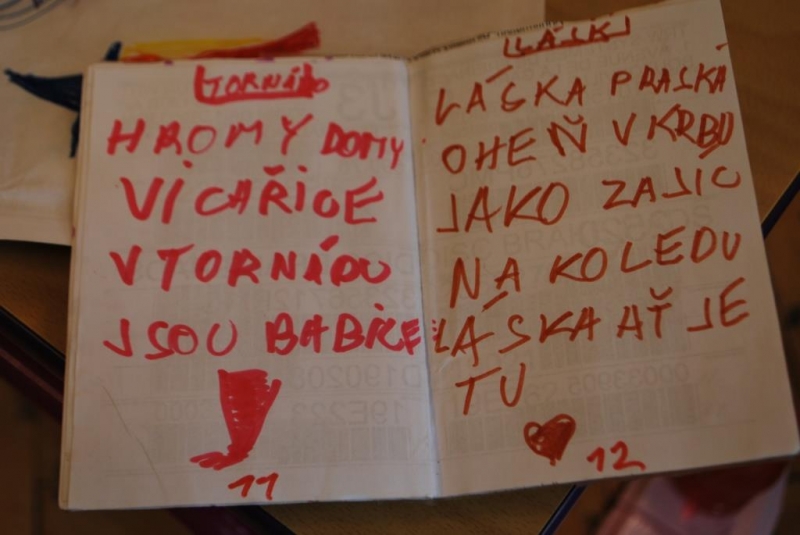 TORNÁDO
HROMY DOMY
VICAŘICE
V TORNÁDU
JSOU BABIČE
11
LÁSKA
LÁSKA PRASKÁ
OHEŇ V KRBU
JAKO ZAJIC
NA KOLEDU
LÁSKA AŤ JE
TU
12